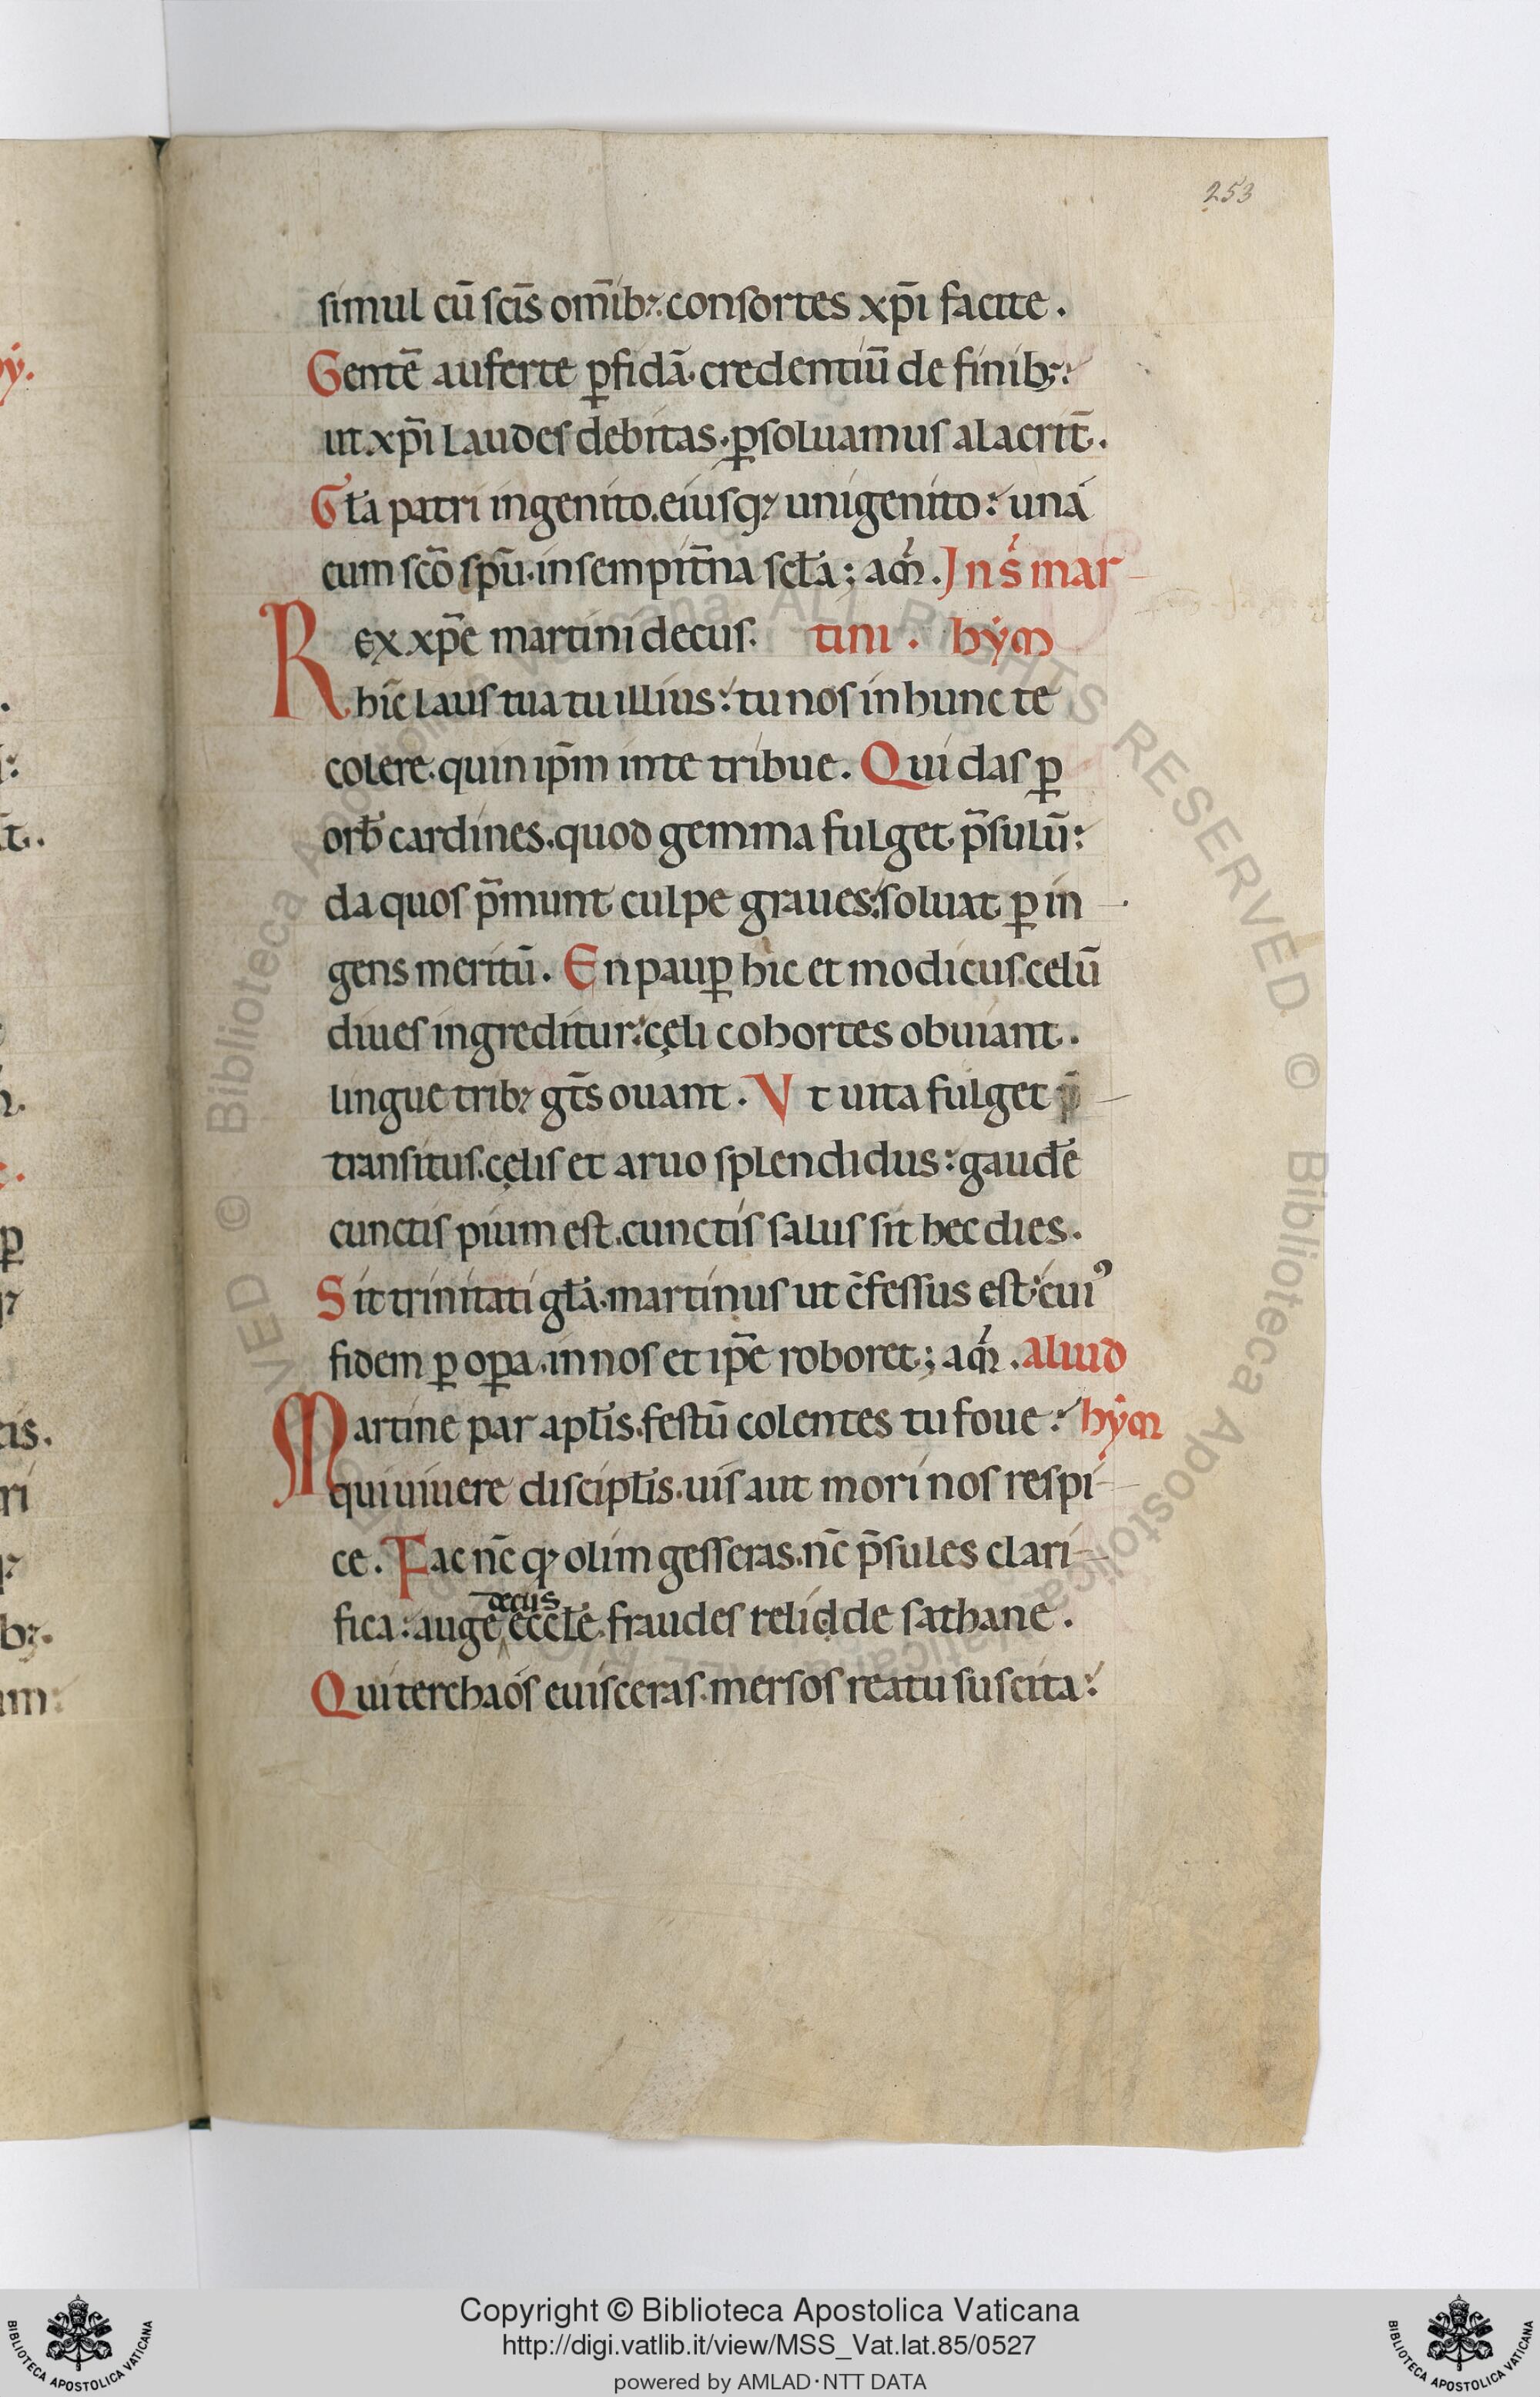 253
simul cū scīs om̄ib; consortes xp̄i facite.
Gentē auferte ꝑfidā. credentiū de finib;:
ut xp̄i laudes debitas. ꝑsoluamus alacrit̄.
Gła patri ingenito. eiusq; unigenito: una
cum sc̄o sp̄u. in sempit̄na scła; am̄. In s̄ mar
Rex xp̄e martini decus. tini. hẏm̄
hic̄ laus tua tu illius: tu nos in hunc te
colere. quin ip̄m inte tribue. Qui das ꝑ
orb̄ cardines. quod gemma fulget p̄sulū:
da quos p̄munt culpe graues: soluat ꝑ in
gens meritū. En pauꝑ hic et modicus. celū
diues ingreditur: cęli cohortes obuiant.
lingue trib; gt̄s ouant. Vt uita fulget
transitus. cęlis et aruo splendidus: gaud̄e
cunctis pium est. cunctis salus sit hec dies.
Sit trinitati gła. martinus ut c̄fessus est: cuiꝰ
fidem ꝑ oꝑa. in nos et ip̄e roboret; am̄. aliud
Martine par apłis. festū colentes tu foue: hẏm̄
qui uiuere discipłis. uis aut mori nos respi-
ce. Fac nc̄ q; olim gesseras. nc̄ p̄sules clari-
decus
fica: auge eccłe. fraudes relid de sathane.
Qui ter chaos euisceras. mersos reatu suscita:
ẏ.
Copyright © Biblioteca Apostolica Vaticana
http://digi.vatlib.it/view/MSS_Vat.lat.85/0527
powered by AMLAD·NTT DATA
BIBLIOTECA APOSTOLICA VATICANA
BIBLIOTECA APOSTOLICA VATICANA
© Biblioteca Apostolica Vaticana ALL RIGHTS RESERVED © Biblioteca Apostolica Vaticana ALL RIGHTS RESERVED